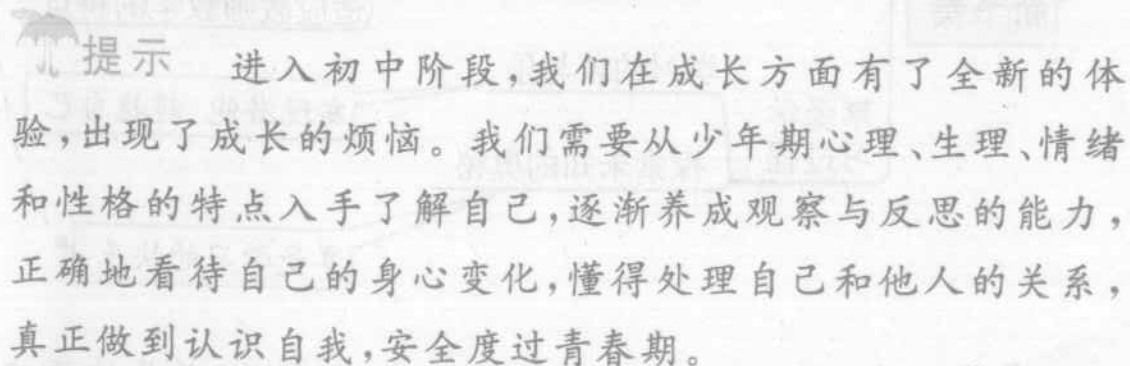 提示 进入初中阶段,我们在成长方面有了全新的体
验,出现了成长的烦恼。我们需要从少年期心理、生理、情绪
和性格的特点入手了解自己,逐渐养成观察与反思的能力,
正确地看待自己的身心变化,懂得处理自己和他人的关系,
真正做到认识自我,安全度过青春期。